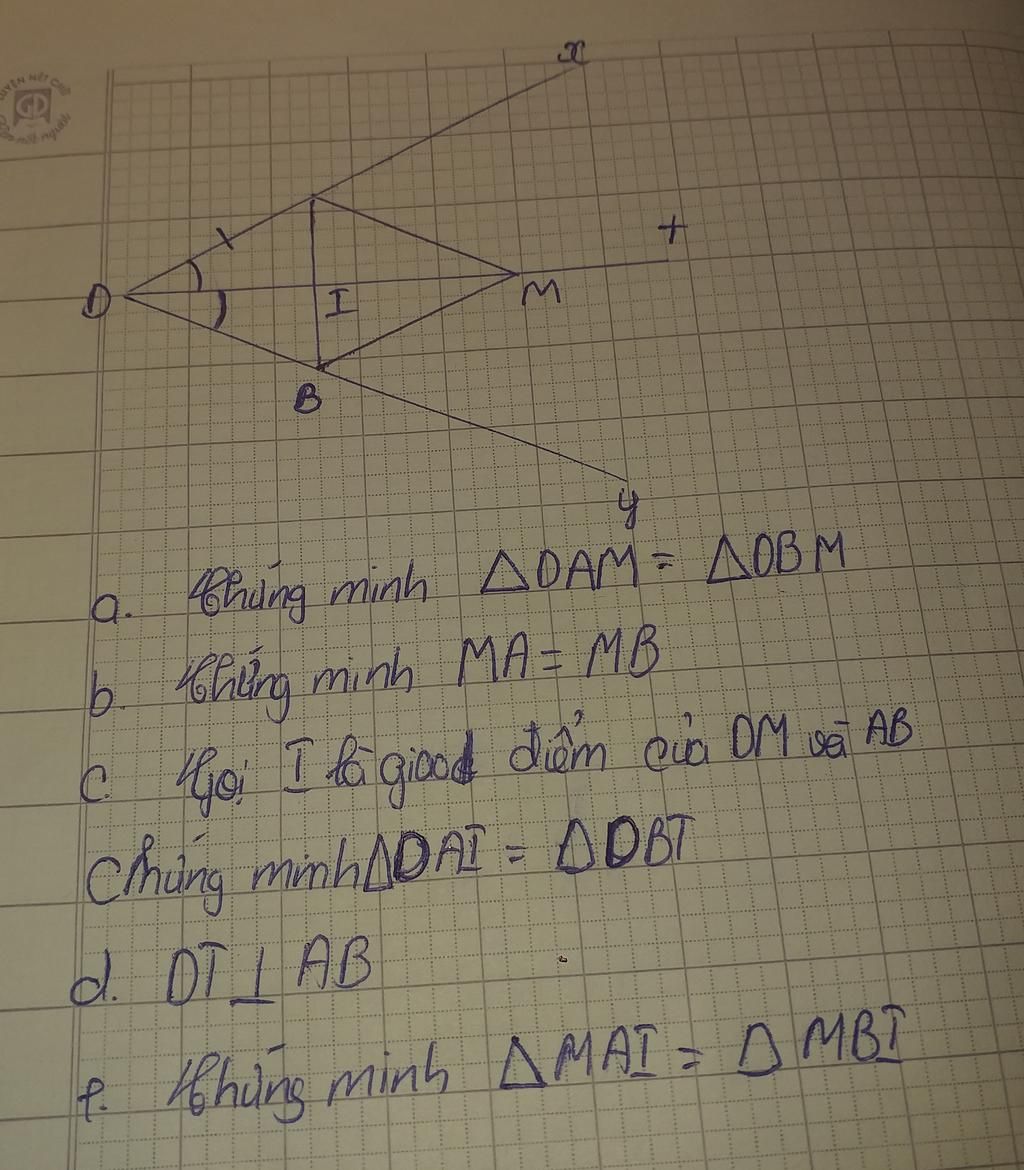 x
t
D
I
M
B
y
a. Chứng minh ΔDAM = ΔDBM
b. Chứng minh MA = MB
c. Gọi I là giao điểm của DM và AB
Chứng minh ΔDAI = ΔDBI
d. DI ⊥ AB
f. Chứng minh ΔMAI = ΔMBI